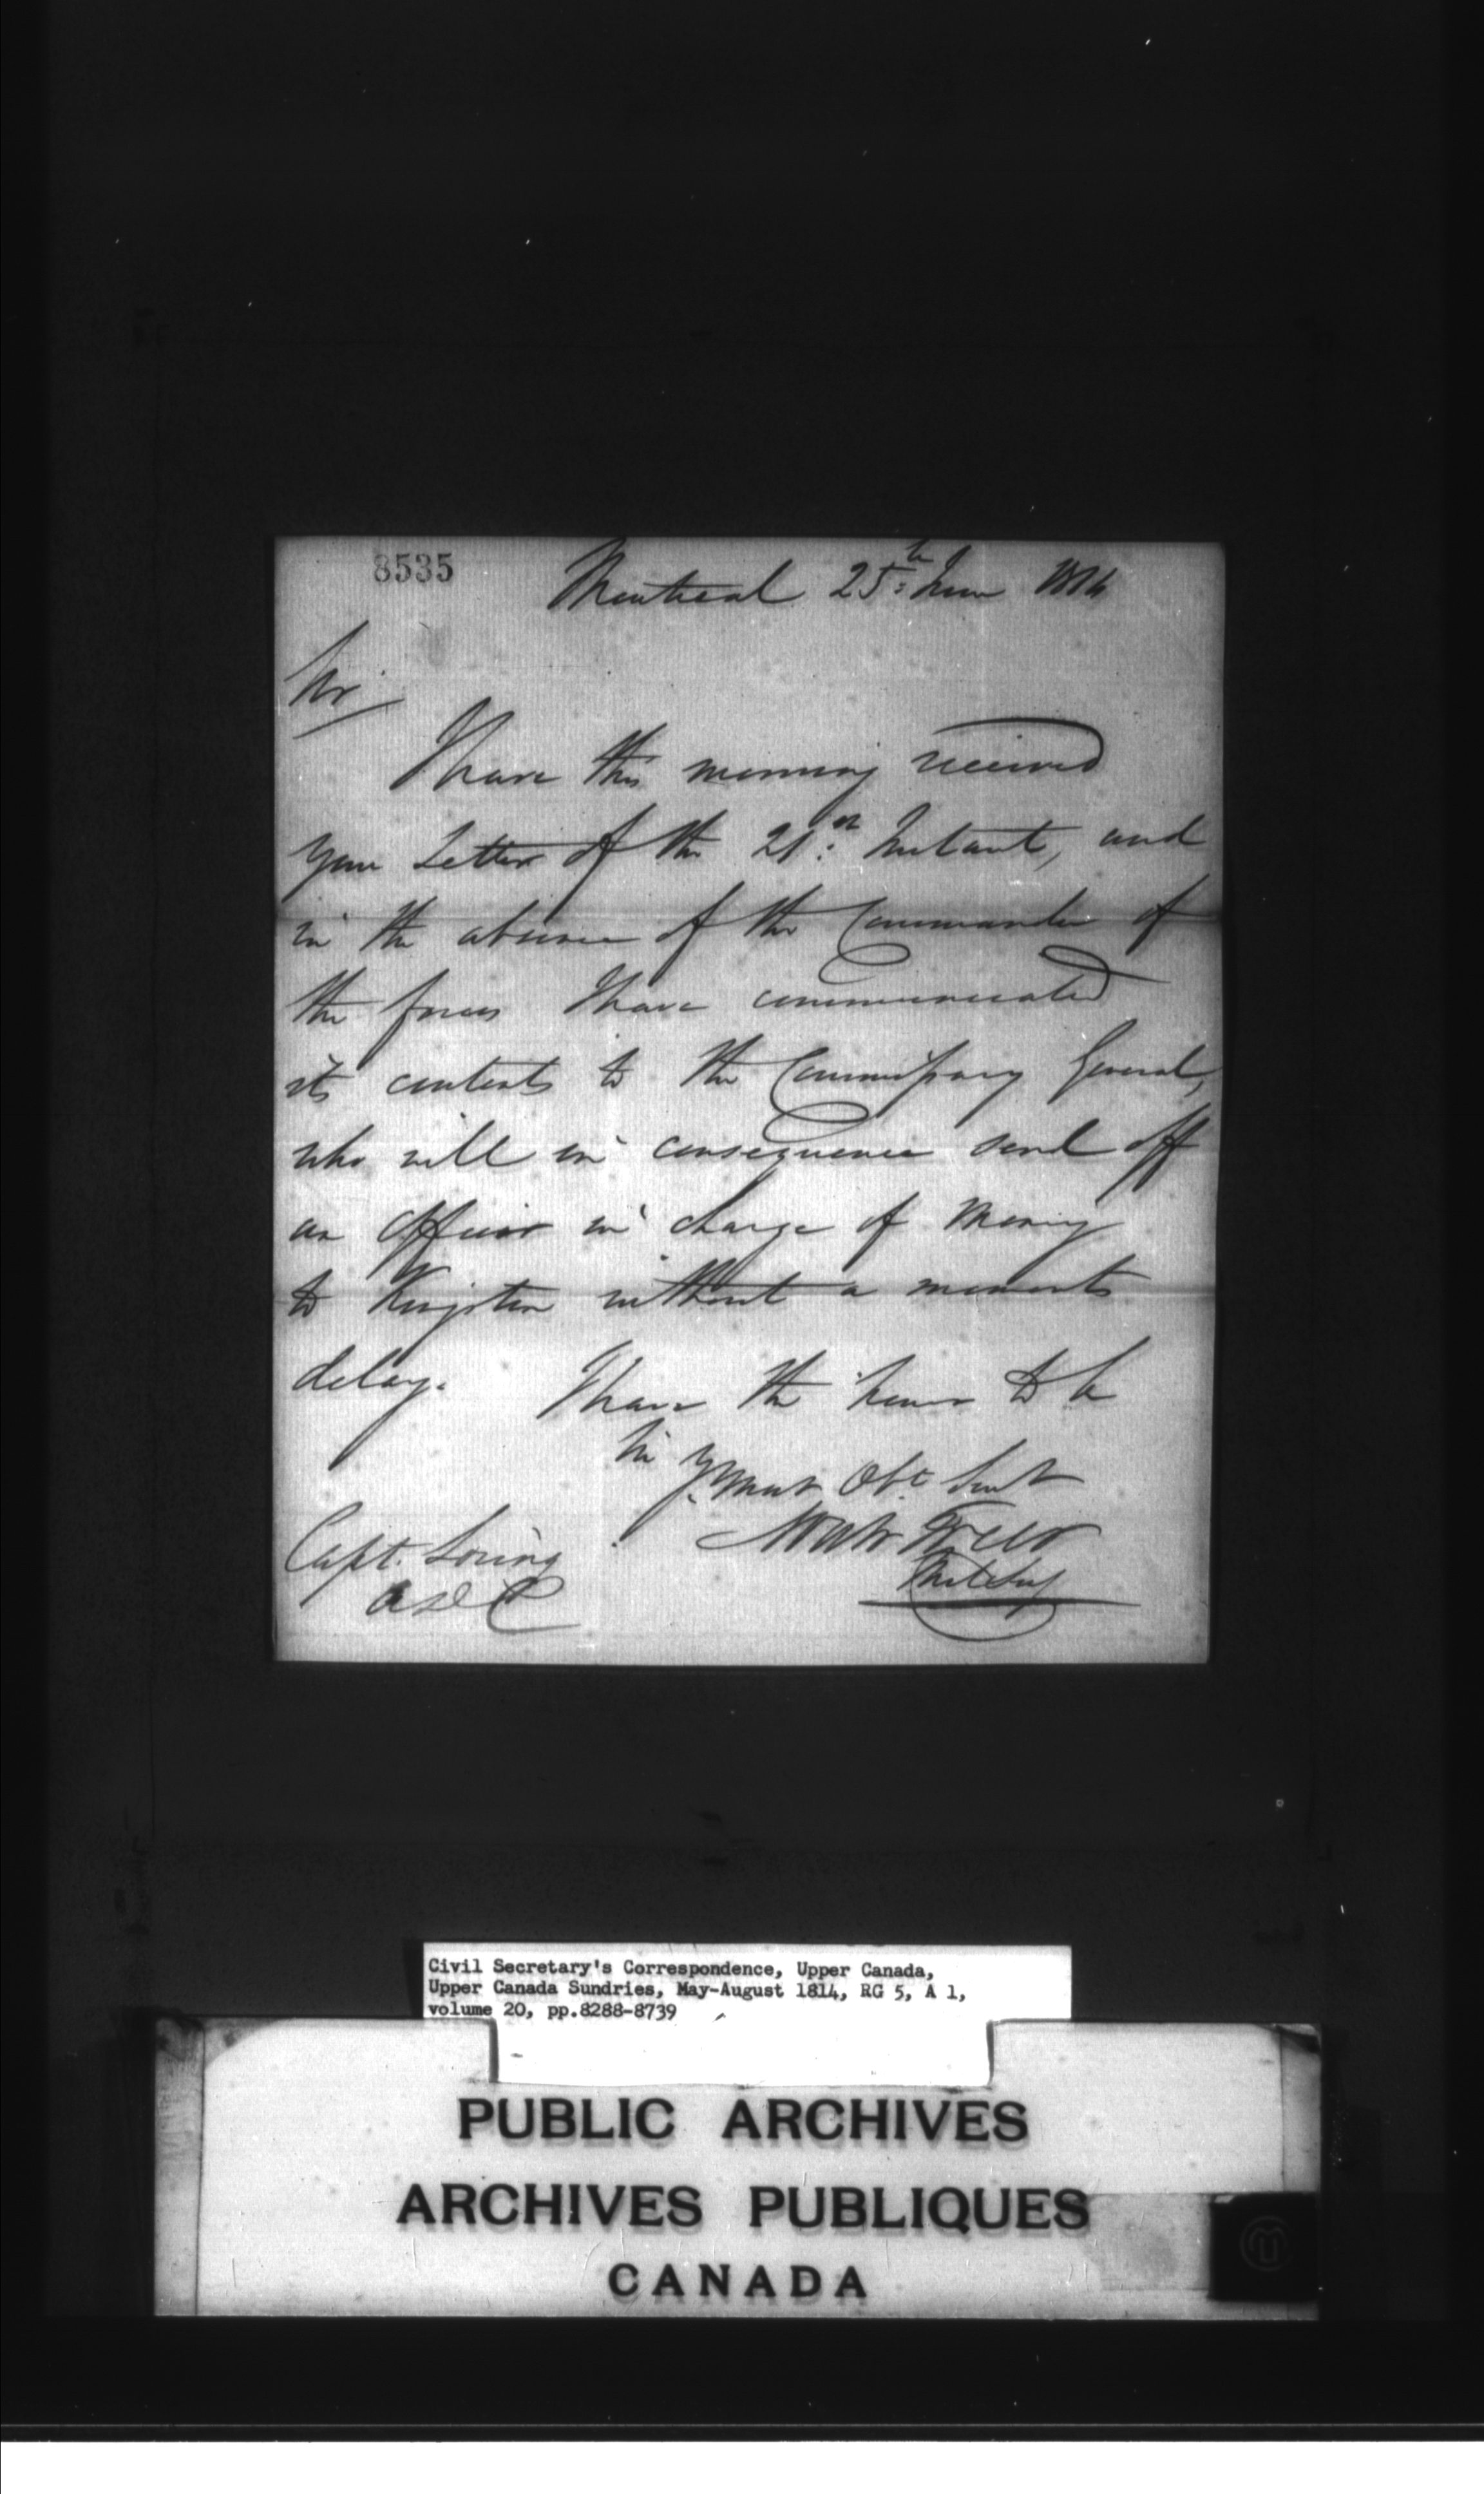 8535
Montreal 25th: June 1814
Sir/
I have this morning received
your Letter of the 21:st Instant, and
in the absence of the Commander of
the forces I have communicated
its contents to the Commissary General,
who will in consequence send off
an Officer in charge of Money
to Kingston without a moments
delay.
I have the honor to be
Sir
Y. Most Obt. Servt
Noah Freer
Mil. Secy
Capt. Loring
ADC
Civil Secretary's Correspondence, Upper Canada,
Upper Canada Sundries, May-August 1814, RG 5, A 1,
volume 20, pp.8288-8739
PUBLIC ARCHIVES
ARCHIVES PUBLIQUES
CANADA